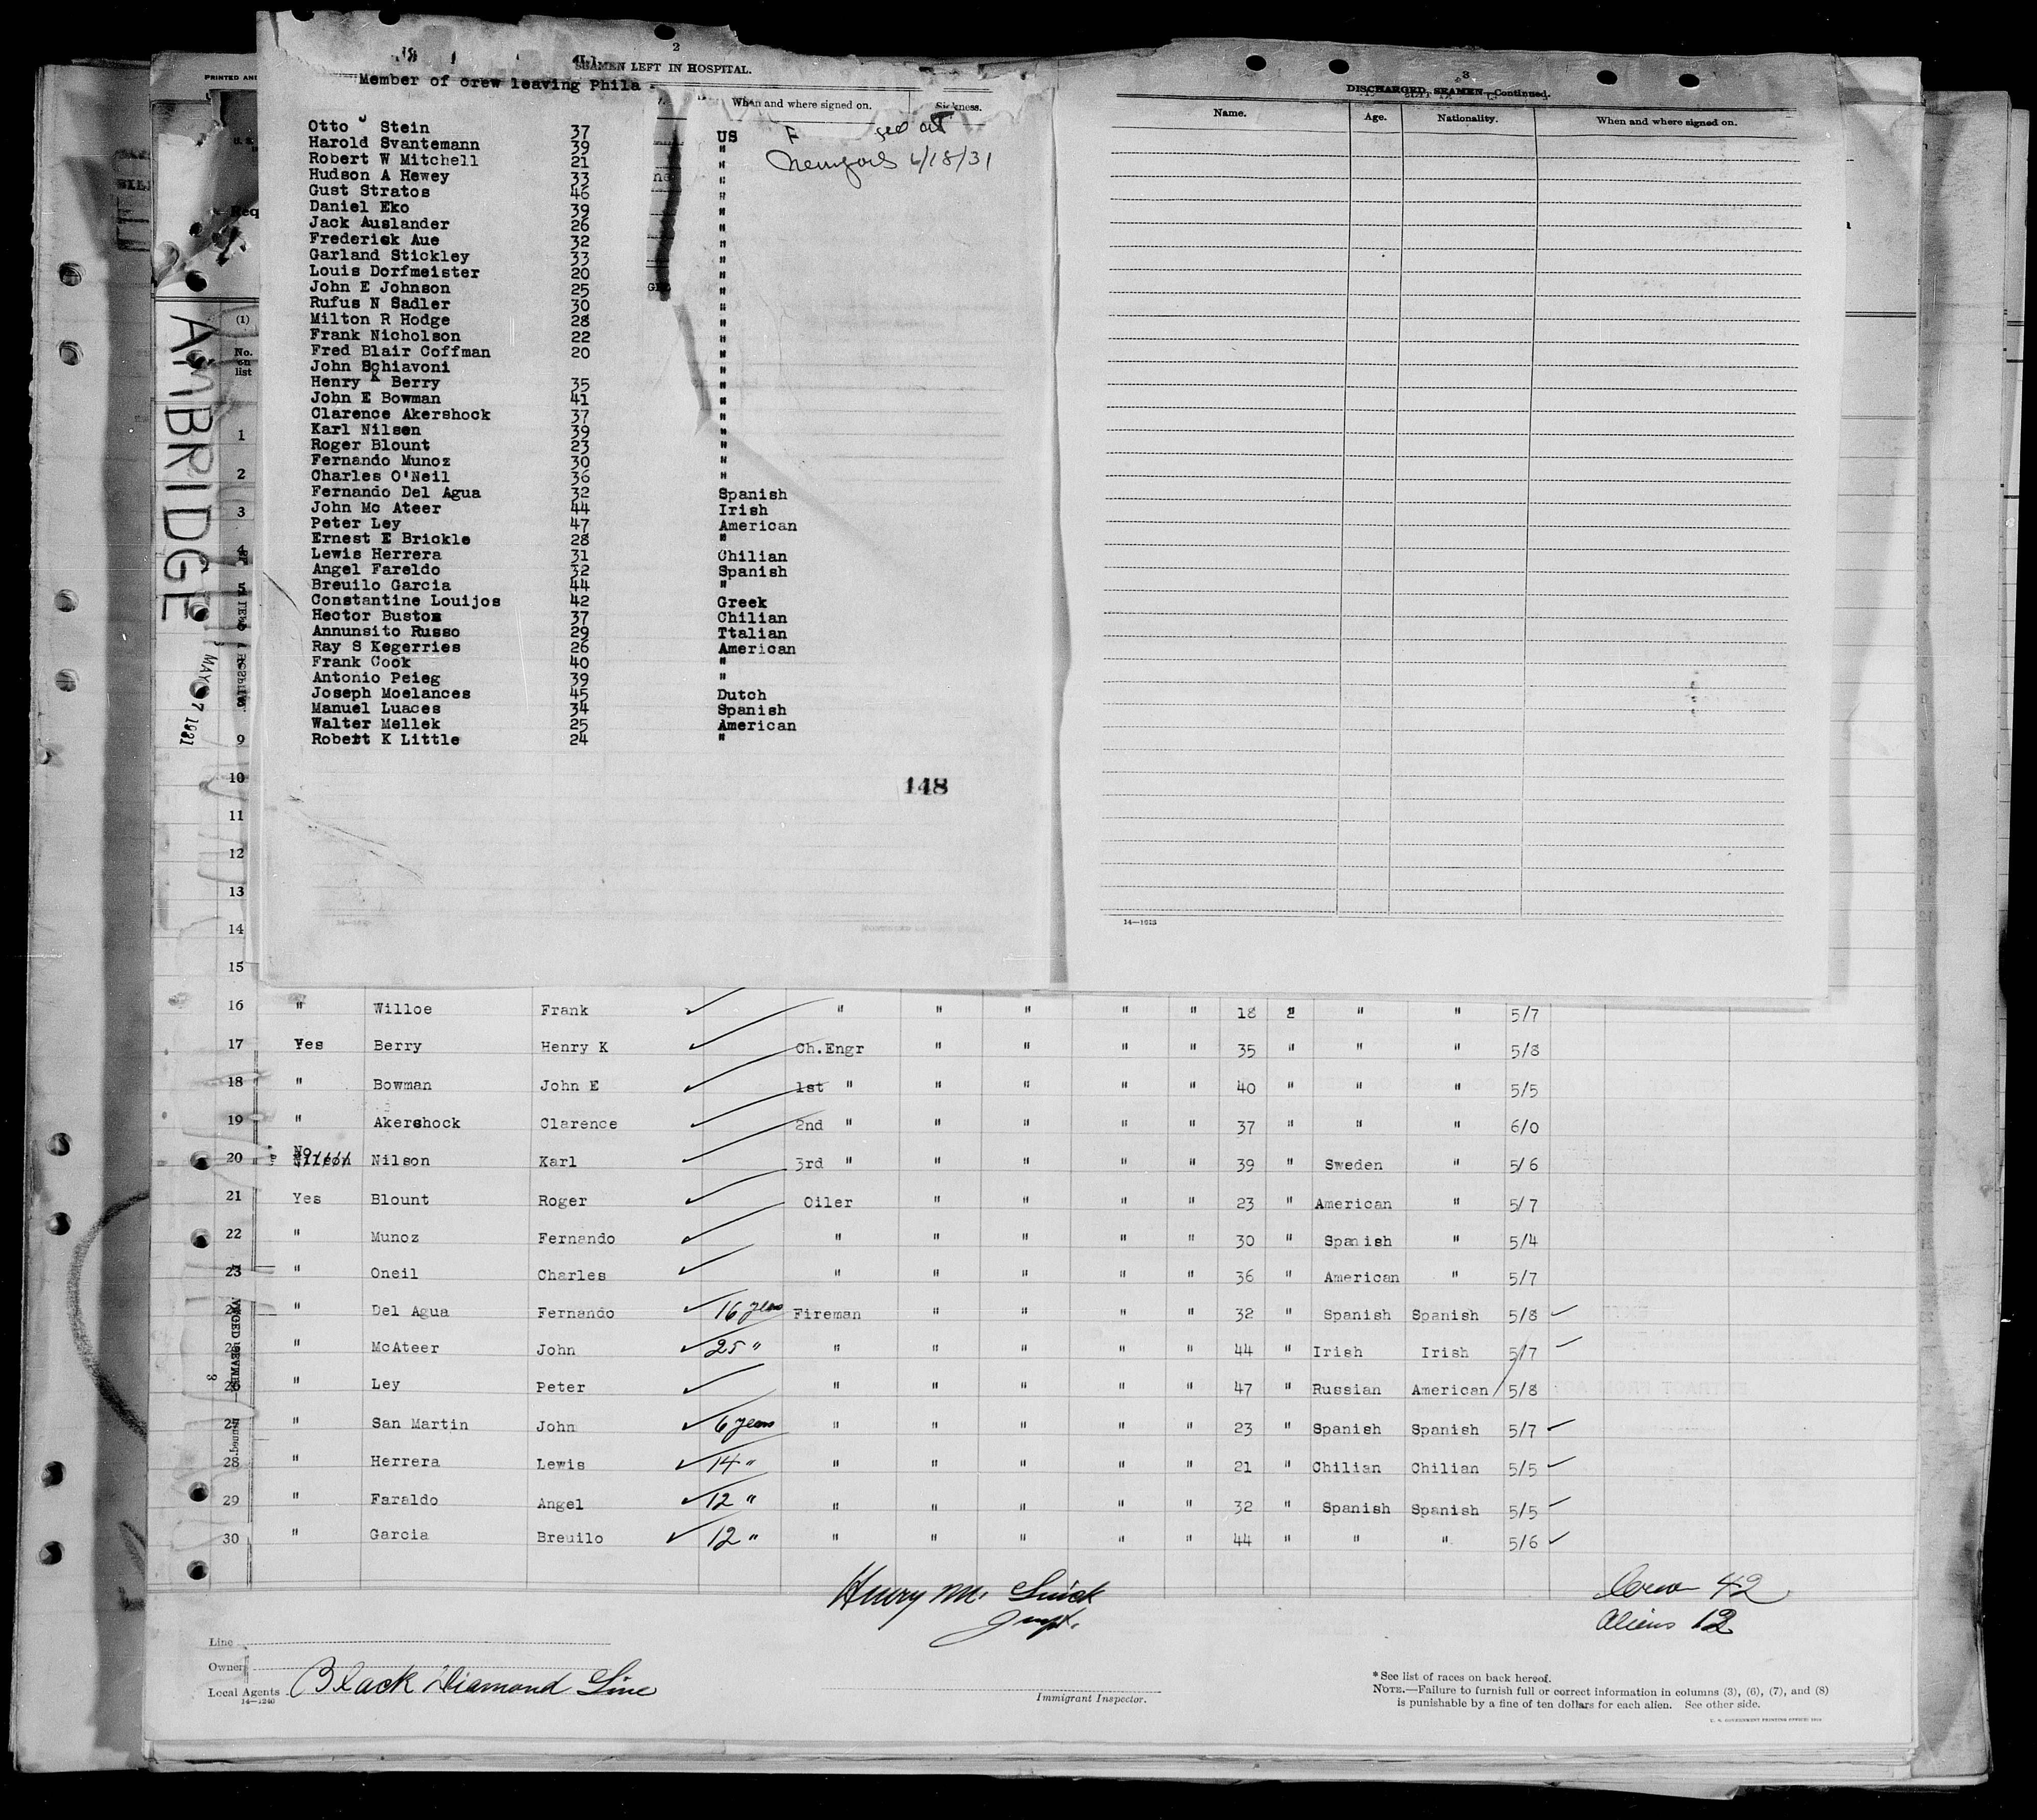 2
SEAMEN LEFT IN HOSPITAL.
Member of crew leaving Phila
When and where signed on. Sickness.
Otto J Stein 37 US
Harold Svantemann 39 "
Newyork 6/18/31
Robert W Mitchell 21 "
Hudson A Hewey 33 "
Gust Stratos 46 "
Daniel Eko 39 "
Jack Auslander 26 "
Frederick Aue 32 "
Garland Stickley 33 "
Louis Dorfmeister 20 "
John E Johnson 25 "
Rufus N Sadler 30 "
Milton R Hodge 28 "
Frank Nicholson 22 "
Fred Blair Coffman 20 "
John Schiavoni "
Henry K Berry 35 "
John E Bowman 41 "
Clarence Akershock 37 "
Karl Nilsen 39 "
Roger Blount 23 "
Fernando Munoz 30 "
Charles O'Neil 36 "
Fernando Del Agua 32 Spanish
John Mc Ateer 44 Irish
Peter Ley 47 American
Ernest E Brickle 28 "
Lewis Herrera 31 Chilian
Angel Fareldo 32 Spanish
Breuilo Garcia 44 "
Constantine Louijos 42 Greek
Hector Bustos 37 Chilian
Annunsito Russo 29 Ttalian
Ray S Kegerries 26 American
Frank Cook 40 "
Antonio Peieg 39 "
Joseph Moelances 45 Dutch
Manuel Luaces 34 Spanish
Walter Mellek 25 American
Robert K Little 24 "
148
3
DISCHARGED SEAMEN—Continued.
Name. Age. Nationality. When and where signed on.
14—1623
PRINTED AND
Req
(1)
No. on list
AMBRIDGE
MAY 7 1931
1
2
3
4
9
10
11
12
13
14
15
16 " Willoe Frank " " " " " 18 " " " 5/7
17 Yes Berry Henry K Ch.Engr " " " " 35 " " " 5/8
18 " Bowman John E 1st " " " " " 40 " " " 5/5
19 " Akershock Clarence 2nd " " " " " 37 " " " 6/0
20 No Nilson Karl 3rd " " " " " 39 " Sweden " 5/6
21 Yes Blount Roger Oiler " " " " 23 " American " 5/7
22 " Munoz Fernando " " " " " 30 " Spanish " 5/4
23 " Oneil Charles " " " " " 36 " American " 5/7
24 " Del Agua Fernando 16 years Fireman " " " " 32 " Spanish Spanish 5/8
25 " McAteer John 25 " " " " " " 44 " Irish Irish 5/7
26 " Ley Peter " " " " " 47 " Russian American 5/8
27 " San Martin John 6 years " " " " " 23 " Spanish Spanish 5/7
28 " Herrera Lewis 14 " " " " " " 21 " Chilian Chilian 5/5
29 " Faraldo Angel 12 " " " " " " 32 " Spanish Spanish 5/5
30 " Garcia Breuilo 12 " " " " " " 44 " " " 5/6
Crew 42
Aliens 12
Line
Owner
Local Agents Black Diamond Line
14—1240
Immigrant Inspector.
* See list of races on back hereof.
NOTE.—Failure to furnish full or correct information in columns (3), (6), (7), and (8)
is punishable by a fine of ten dollars for each alien. See other side.